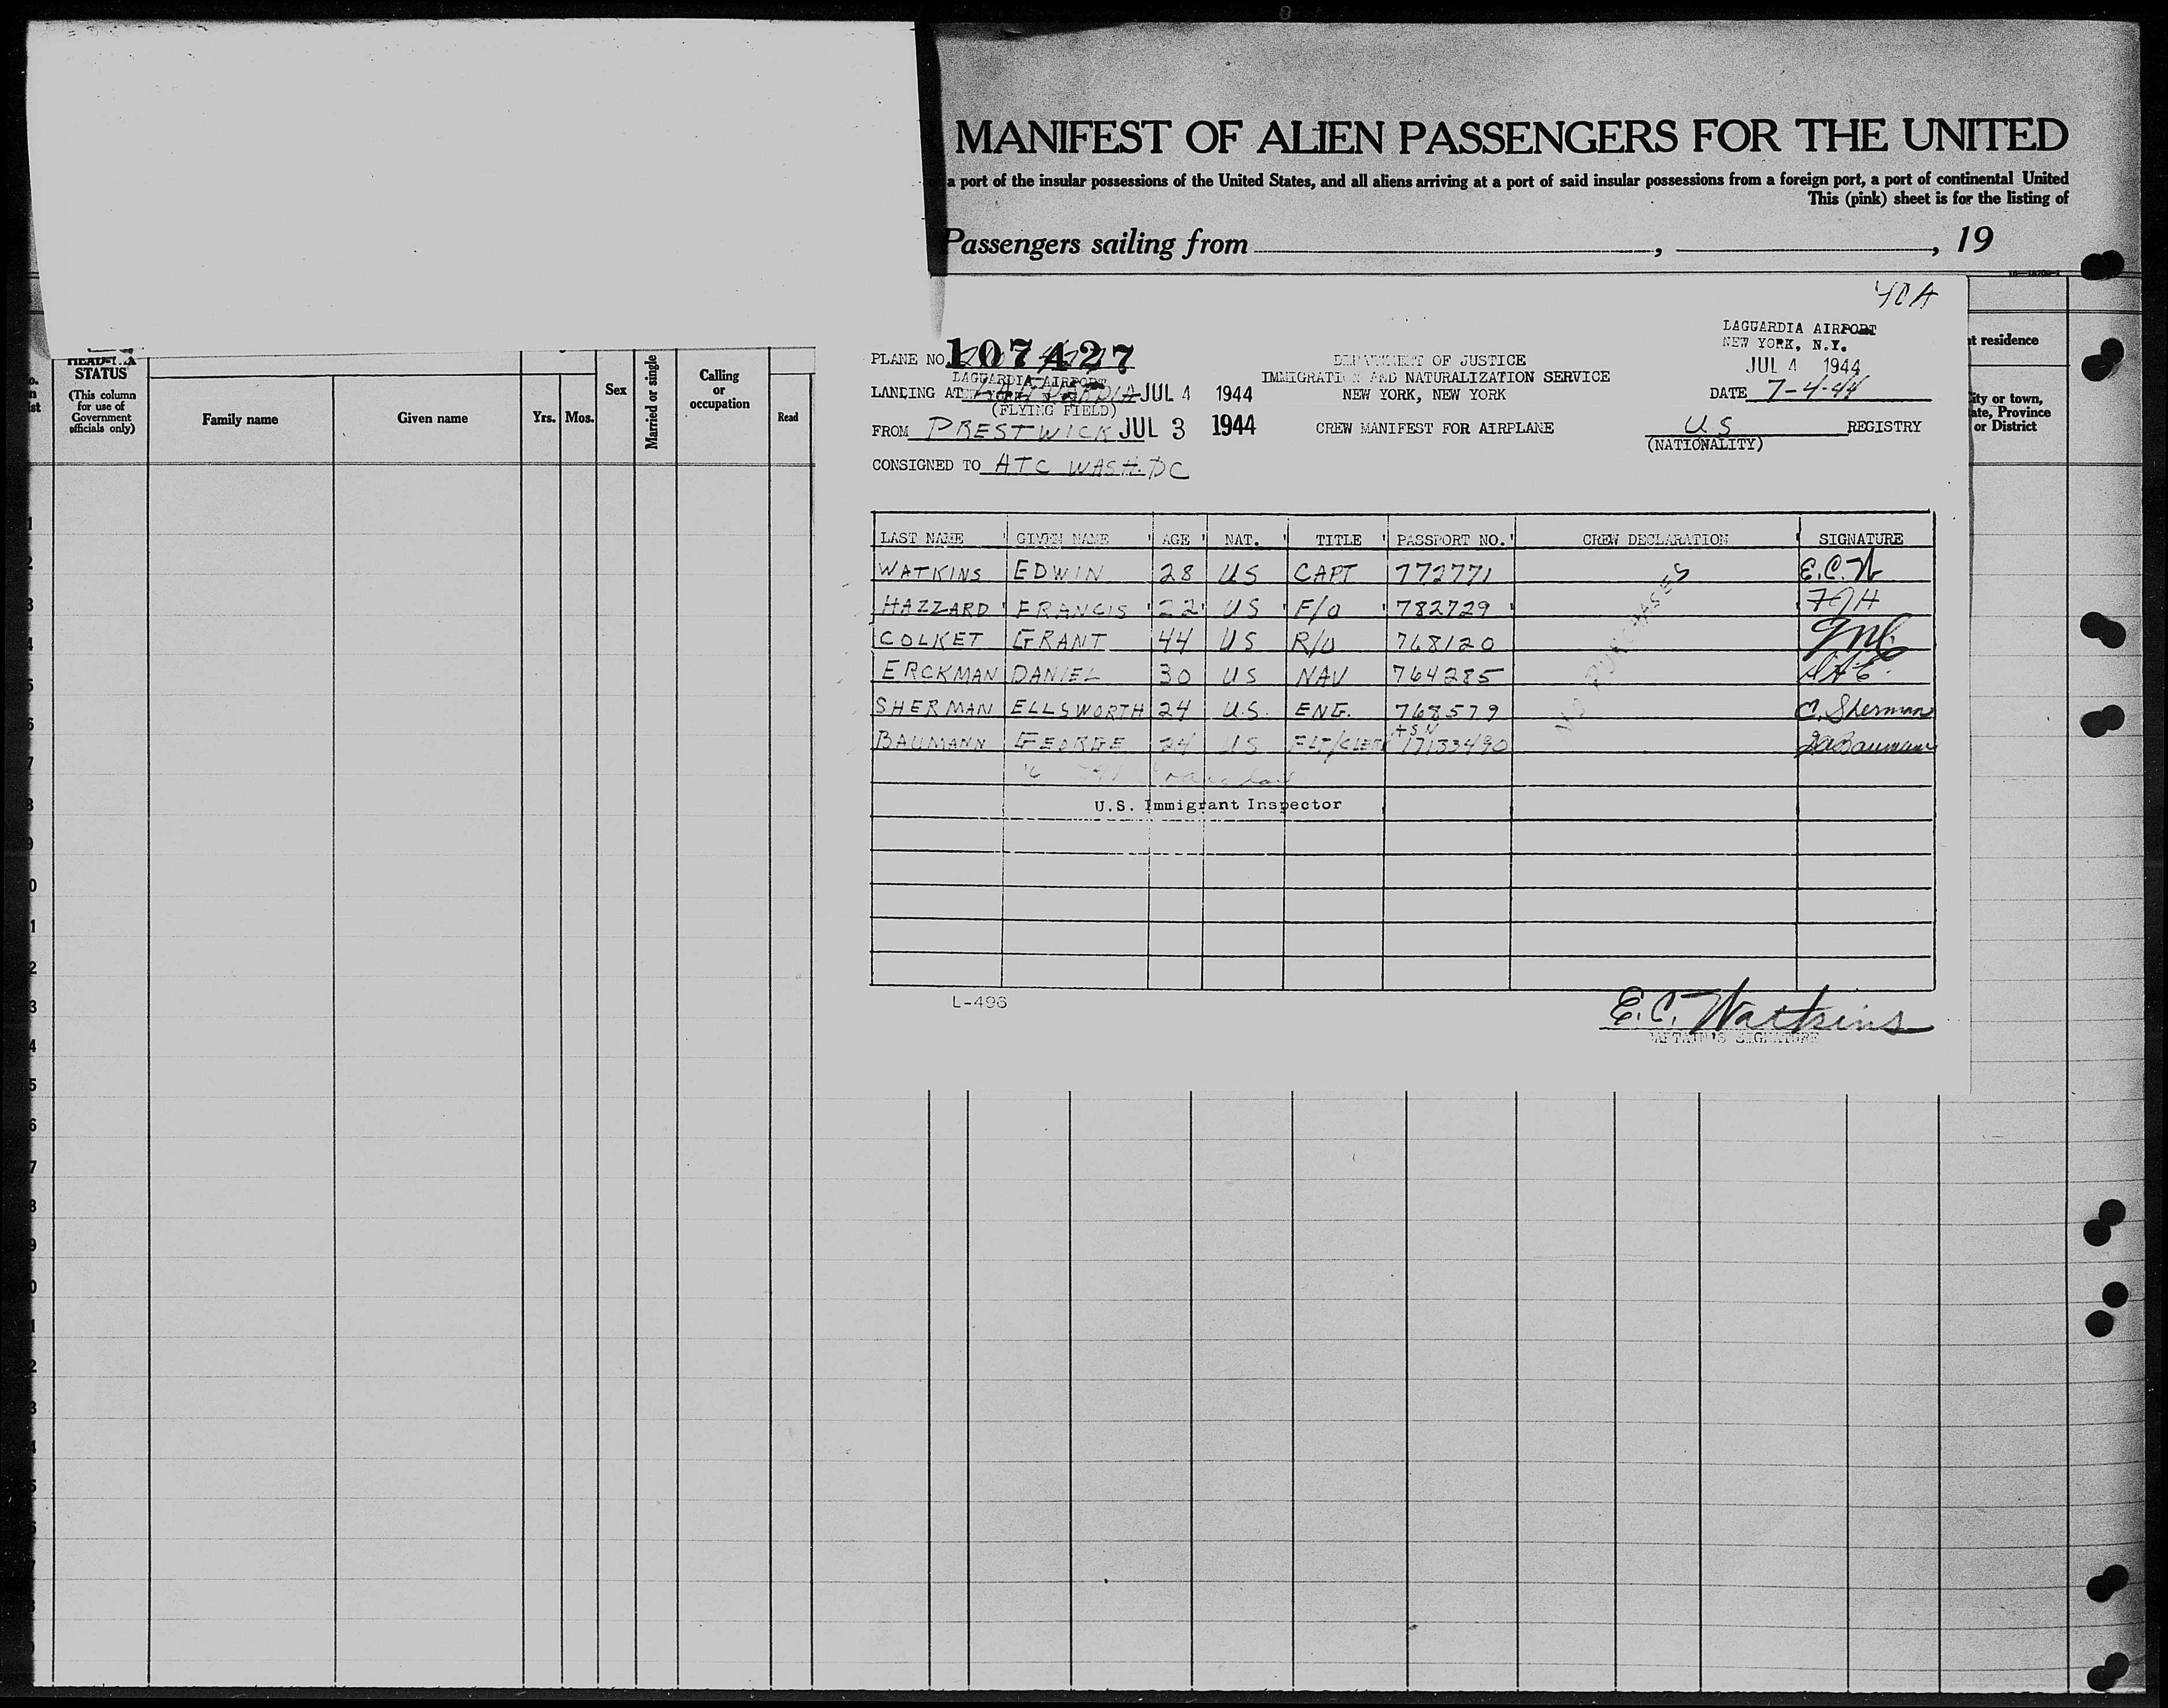 MANIFEST OF ALIEN PASSENGERS FOR THE UNITED
a port of the insular possessions of the United States, and all aliens arriving at a port of said insular possessions from a foreign port, a port of continental United
This (pink) sheet is for the listing of
Passengers sailing from , , 19
STATUS
(This column
for use of
Government
officials only)
Family name
Given name
Yrs.
Mos.
Sex
Married or single
Calling
or
occupation
Read
LAGUARDIA AIRPORT
NEW YORK, N.Y.
JUL 4 1944
PLANE NO. 107427
DEPARTMENT OF JUSTICE
LAGUARDIA AIRPORT
IMMIGRATION AND NATURALIZATION SERVICE
LANDING AT JUL 4 1944
NEW YORK, NEW YORK
DATE 7-4-44
(FLYING FIELD)
FROM PRESTWICK JUL 3 1944
CREW MANIFEST FOR AIRPLANE
US REGISTRY
(NATIONALITY)
CONSIGNED TO ATC WASH. DC
LAST NAME GIVEN NAME AGE NAT. TITLE PASSPORT NO. CREW DECLARATION SIGNATURE
WATKINS EDWIN 28 US CAPT 772771 E.C.W
HAZZARD FRANCIS 22 US F/O 782729 FJH
COLKET GRANT 44 US R/O 768120
ERCKMAN DANIEL 30 US NAV 764285
SHERMAN ELLSWORTH 24 U.S. ENG. 768579 Sherman
BAUMANN GEORGE 24 US FLT/CLERK 17133490 Baumann
NO PURCHASES
U.S. Immigrant Inspector
L-496
E.C. Watkins
CAPTAIN'S SIGNATURE
t residence
ity or town,
ate, Province
or District